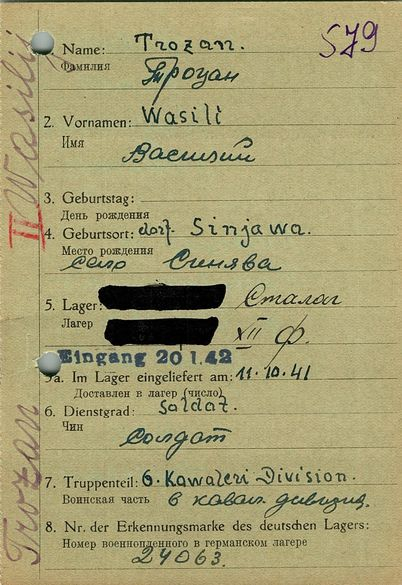 579
1. Name: Trozan.
Фамилия Трозан
2. Vornamen: Wasili
Имя
Василий
3. Geburtstag:
День рождения
4. Geburtsort: dorf. Sinjawa.
Место рождения
село Синява
5. Lager: Сталаг
Лагер XII Ф.
Eingang 20 1.42
5a. Im Lager eingeliefert am: 11.10.41
Доставлен в лагер (число)
6. Dienstgrad: Soldat.
Чин
Солдат
7. Truppenteil: 6. Kawaleri Division.
Воинская часть 6 кавал. дивизия.
8. Nr. der Erkennungsmarke des deutschen Lagers:
Номер военнопленного в германском лагере
24063.
Trozan II Wasilij